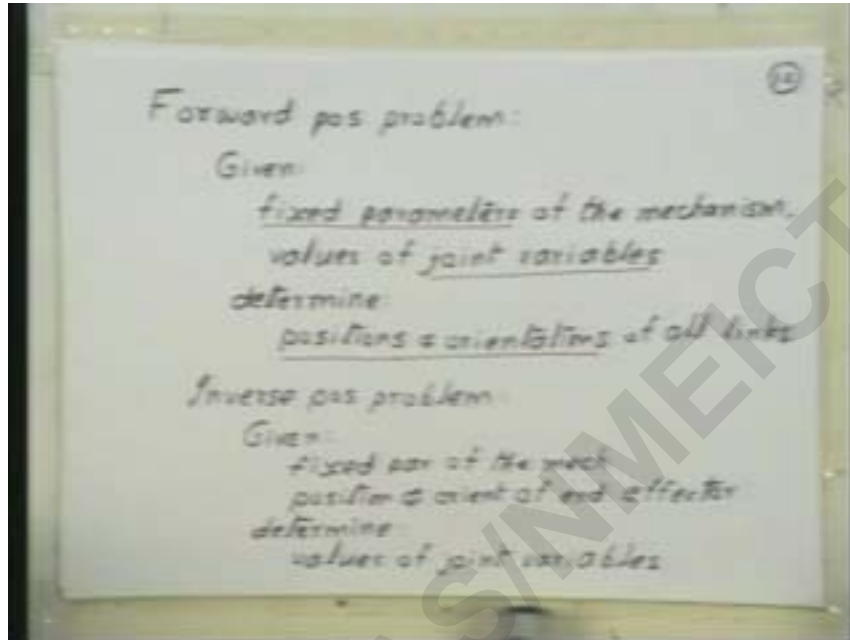 Forward pos problem:
Given:
fixed parameters of the mechanism,
values of joint variables
determine:
positions & orientations of all links
Inverse pos problem:
Given:
fixed par of the mech
position & orient of end effector
determine:
values of joint variables
S/NMEICT